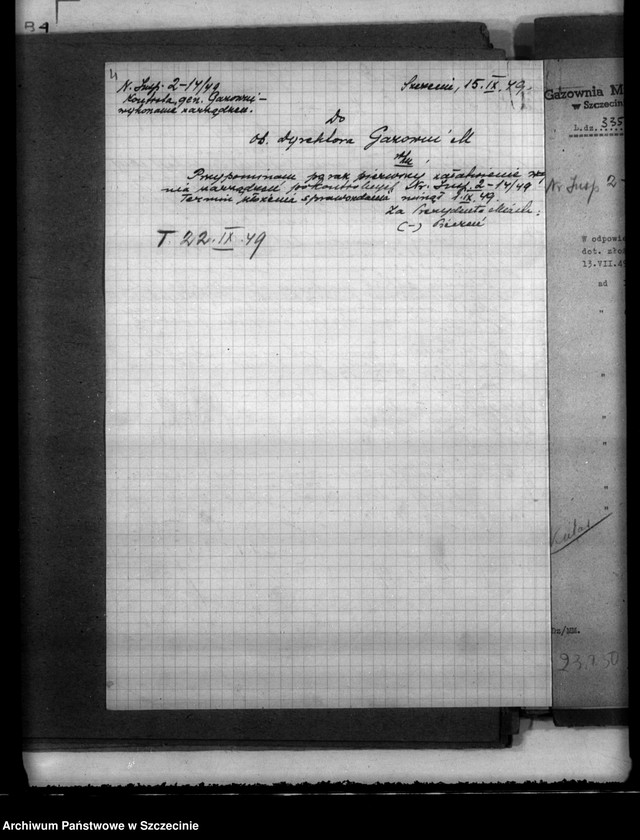 84
4
N. Insp. 2-14/49
Kontrola gen. Gazowni –
wykonanie zarządzeń.
Szczecin, 15.IX.49.
Do
ob. Dyrektora Gazowni M
w/m
Przypominam po raz pierwszy załatwienie
nia zarządzeń pokontrolnych Nr. Insp. 2-14/49
Termin złożenia sprawozdania minął 1.IX.49.
Za Prezydenta Miasta:
(-)
T. 22.IX.49
Gazownia M
w Szczecin
L.dz. 335
Nr Insp 2-
W odpowie
dot. złoż
13.VII.49
ad
"
"
"
"
"
"
Dz/MM.
23.2.50
Archiwum Państwowe w Szczecinie